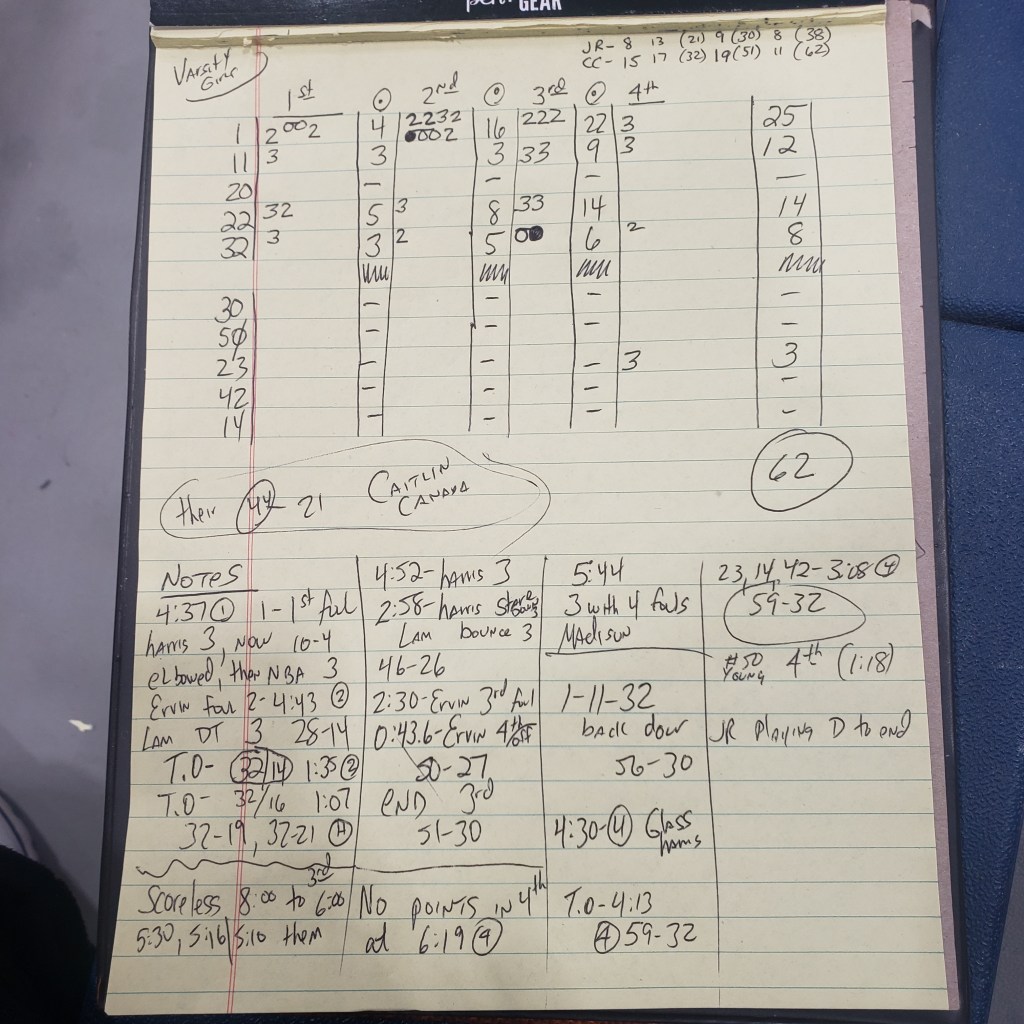 GEAR
JR- 8 13 (21) 9 (30) 8 (38)
CC- 15 17 (32) 19 (51) 11 (62)
VARSITY
GIRLS
1st ⊙ 2nd ⊙ 3rd ⊙ 4th
1 2 002 4 2232 0002 16 222 22 3 25
11 3 3 3 33 9 3 12
20 - - - -
22 32 5 3 8 33 14 14
32 3 3 2 5 0 6 2 8
30 - - - -
50 - - - -
23 - - - 3 3
42 - - - -
14 - - - -
62
their 44 21 CAITLIN
CANADA
NOTES
4:37 ① 1-1st foul
harris 3, NOW 10-4
elbowed, then NBA 3
Ervin foul 2- 4:43 ②
LAM DT 3 28-14
T.O- 32/14 1:35 ②
T.O- 32/16 1:07
32-19, 32-21 Ⓗ
3rd
Scoreless 8:00 to 6:00
5:30, 5:16 5:10 them
4:52- harris 3
2:58- harris
LAM bounce 3
46-26
2:30- Ervin 3rd foul
0:43.6- Ervin 4th off
50-27
END 3rd
51-30
NO POINTS IN 4th
at 6:19 ④
5:44
3 with 4 fouls
MADISON
1-11-32
back door
56-30
4:30-④ Glass
harris
T.O-4:13
④ 59-32
23, 14, 42- 3:08 ④
59-32
#50 YOUNG 4th (1:18)
JR Playing D to end